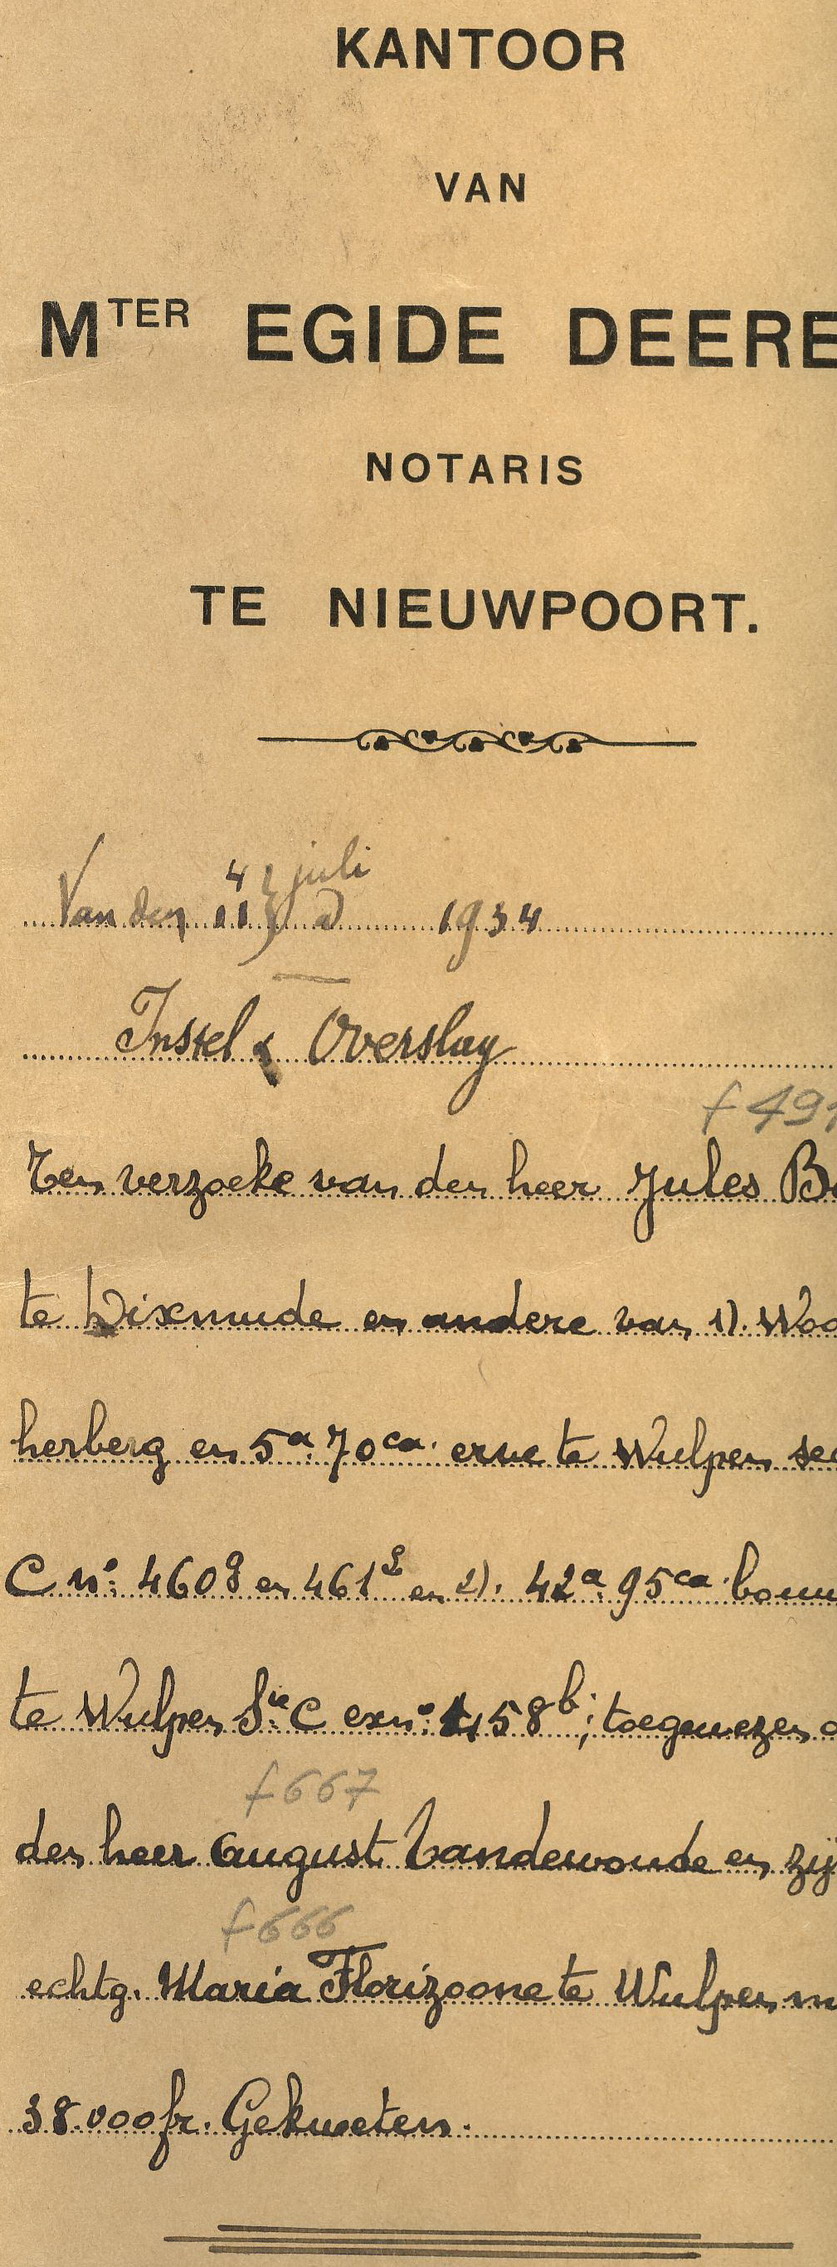 KANTOOR
VAN
MTER EGIDE DEERE
NOTARIS
TE NIEUWPOORT.
4 juli
Van den 11 1934
Instel & Overslag
f 491
Ten verzoeke van den heer Jules B
te Dixmude en andere van 1). Woo
herberg en 5a 70ca. erve te Wulpen sec
C no: 460g en 461 en 2). 42a. 95ca. bouw
te Wulpen Sie C ex no: 458b; toegewezen
f 667
den heer August Vandewoude en zij
f 666
echtg. Maria Florizoone te Wulpen m
38.000 fr. Gekweten.